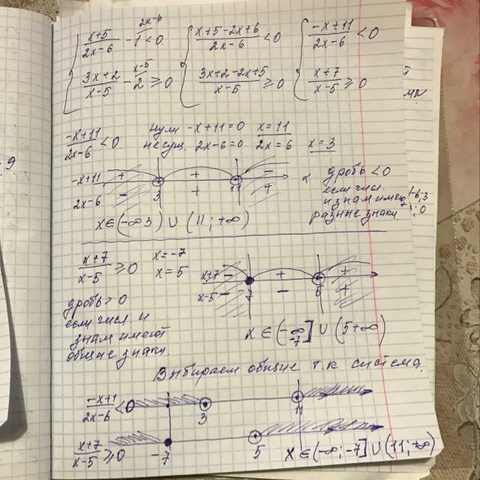 2x-6
{ x+5/2x-6 - 1/1 < 0 { x+5-2x+6/2x-6 < 0 { -x+11/2x-6 < 0
x-5
{ 3x+2/x-5 - 2 ≥ 0 { 3x+2-2x+5/x-5 ≥ 0 { x+7/x-5 ≥ 0
-x+11/2x-6 < 0 нули -x+11=0 x=11
не сущ. 2x-6=0 2x=6 x=3
-x+11 + + -
2x-6 - + + x
3 11
дробь <0
если числ.
и знам имеют
разные знаки
x∈(-∞ 3) ∪ (11; +∞)
x+7/x-5 ≥ 0 x=-7
x=5
x+7 - + +
x-5 - - +
-7 5
дробь > 0
если числ. и
знам имеют
общие знаки
x ∈ (-∞ -7] ∪ (5+∞)
Выбираем общие т.к система.
-x+1/2x-6 < 0 3 11
x+7/x-5 ≥ 0 -7 5
x∈(-∞; -7] ∪ (11; +∞)